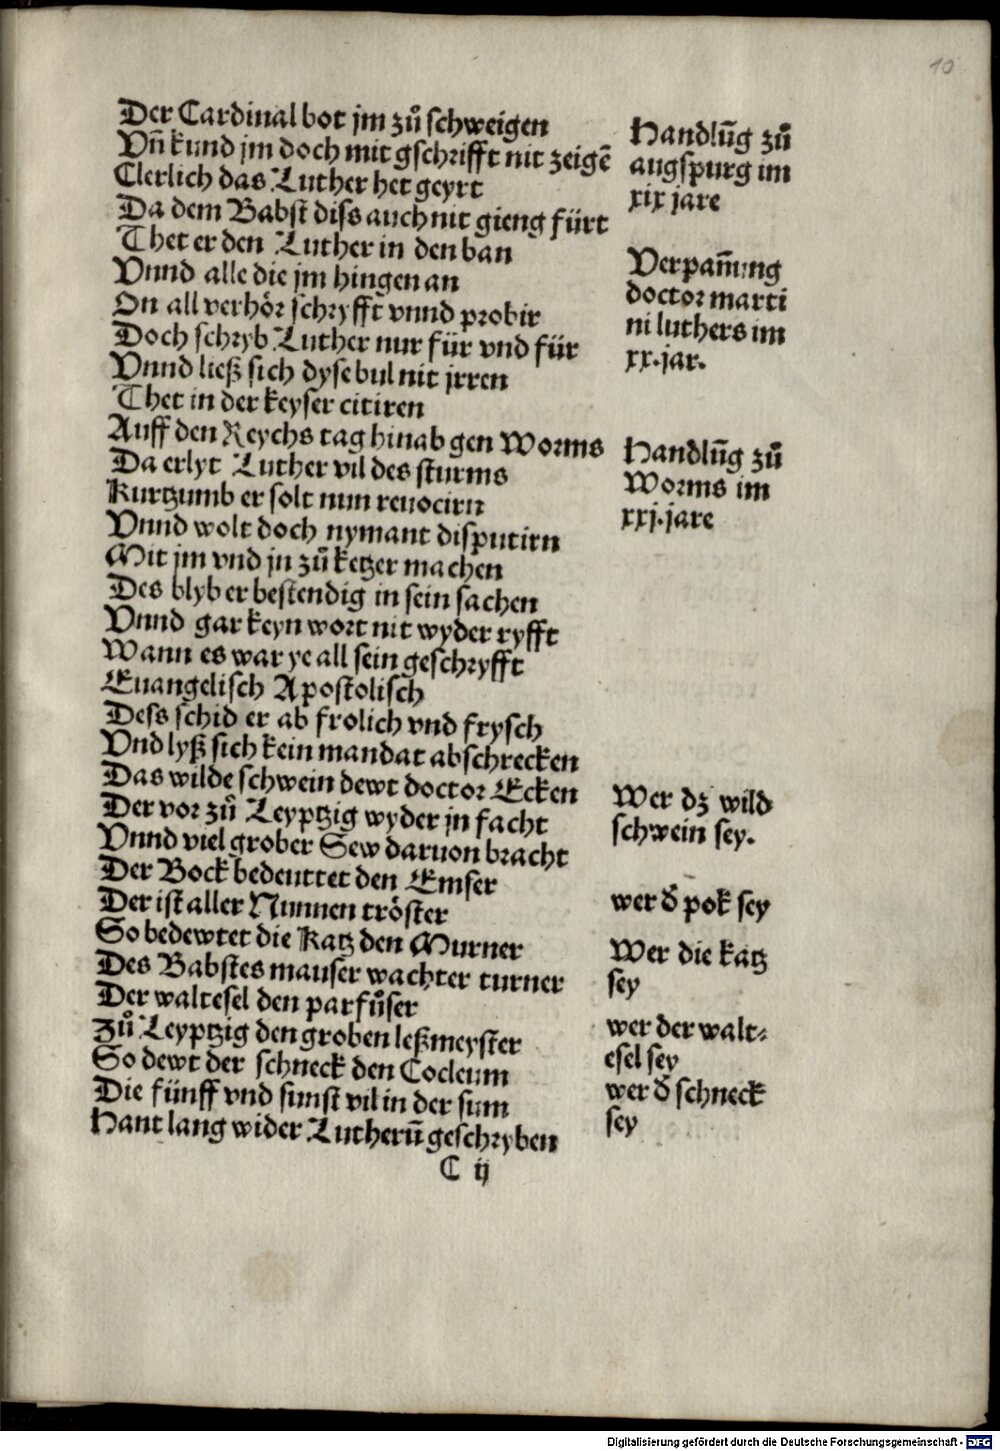 10
Der Cardinal bot jm zuͦ schweigen
Vñ kund jm doch mit gschrifft nit zeigē
Clerlich das Luther het geyrt
Da dem Babst diss auch nit gieng fürt
Thet er den Luther in den ban
Vnnd alle die jm hingen an
On all verhör schryfft vnnd probir
Doch schryb Luther nur für vnd für
Vnnd ließ sich dyse bul nit jrren
Thet in der keyser citiren
Auff den Reychs tag hinab gen Worms
Da erlyt Luther vil des sturms
Kurtzumb er solt nun reuocirn
Vnnd wolt doch nymant disputirn
Mit jm vnd jn zuͦ ketzer machen
Des blyb er bestendig in sein sachen
Vnnd gar keyn wort nit wyder ryfft
Wann es war ye all sein geschryfft
Euangelisch Apostolisch
Dess schid er ab frolich vnd frysch
Vnd lyß sich kein mandat abschrecken
Das wilde schwein dewt doctor Ecken
Der vor zuͦ Leyptzig wyder jn facht
Vnnd viel grober Sew daruon bracht
Der Bock bedeuttet den Emser
Der ist aller Nunnen tröster
So bedewtet die Katz den Murner
Des Babstes mauser wachter turner
Der waltesel den parfuͦser
zuͦ Leyptzig den groben leßmeyster
So dewt der schneck den Cocleum
Die fünff vnd sunst vil in der sum
Hant lang wider Lutherū geschryben
C ij
Handlūg zuͦ
augspurg im
xix jare
Verpañung
doctor marti
ni luthers im
xx.jar.
Handlūg zuͦ
Worms im
xxj.jare
Wer dz wild
schwein sey.
wer d̄ pok sey
Wer die katz
sey
wer der walt⸗
esel sey
wer d̄ schneck
sey
Digitalisierung gefördert durch die Deutsche Forschungsgemeinschaft - DFG